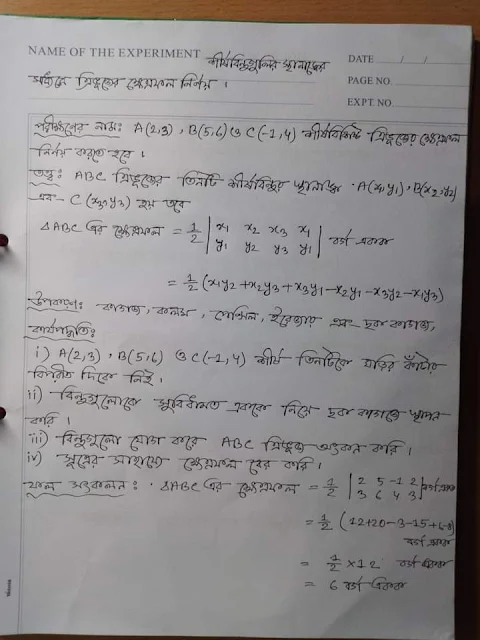 NAME OF THE EXPERIMENT শীর্ষবিন্দুগুলির স্থানাঙ্কের DATE / /
মাধ্যমে ত্রিভুজের ক্ষেত্রফল নির্ণয় । PAGE NO.
EXPT. NO.
পরীক্ষণের নামঃ A(2,3) , B(5,6) ও C(-1,4) শীর্ষবিশিষ্ট ত্রিভুজের ক্ষেত্রফল
নির্ণয় করতে হবে ।
তত্ত্বঃ ABC ত্রিভুজের তিনটি শীর্ষবিন্দুর স্থানাঙ্ক A(x₁,y₁), B(x₂,y₂)
এবং C(x₃,y₃) হয় তবে
ΔABC এর ক্ষেত্রফল = 1/2 | x₁ x₂ x₃ x₁
y₁ y₂ y₃ y₁ | বর্গ একক
= 1/2 (x₁y₂+x₂y₃+x₃y₁-x₂y₁-x₃y₂-x₁y₃)
উপকরণঃ কাগজ, কলম, পেন্সিল, ইরেজার এবং ছক কাগজ,
কার্যপদ্ধতিঃ
i) A(2,3) , B(5,6) ও C(-1,4) শীর্ষ তিনটিকে ঘড়ির কাঁটার
বিপরীত দিকে নিই ।
ii) বিন্দুগুলোকে সুবিধামত এককে নিয়ে ছক কাগজে স্থাপন
করি ।
iii) বিন্দুগুলো যোগ করে ABC ত্রিভুজ অংকন করি ।
iv) সূত্রের সাহায্যে ক্ষেত্রফল বের করি ।
ফল সংকলনঃ ΔABC এর ক্ষেত্রফল = 1/2 | 2 5 -1 2
3 6 4 3 | বর্গ একক
= 1/2 (12+20-3-15+6-8)
বর্গ একক
= 1/2 ×12 বর্গ একক
= 6 বর্গ একক